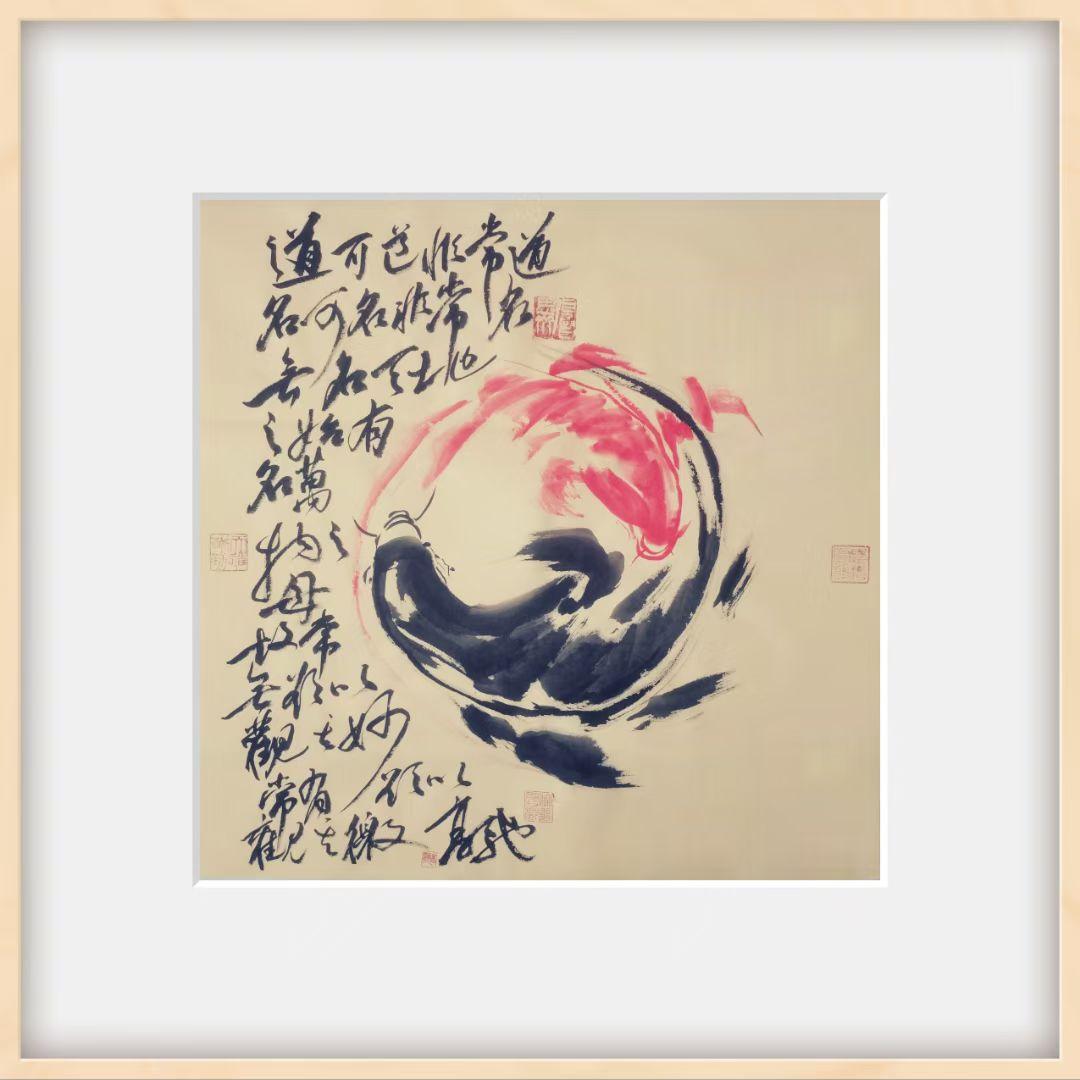 道可道非常道
名可名非常名
無名天地
之始有
名萬
物之
母
故常
無欲以
觀其妙
常有欲以
觀其徼